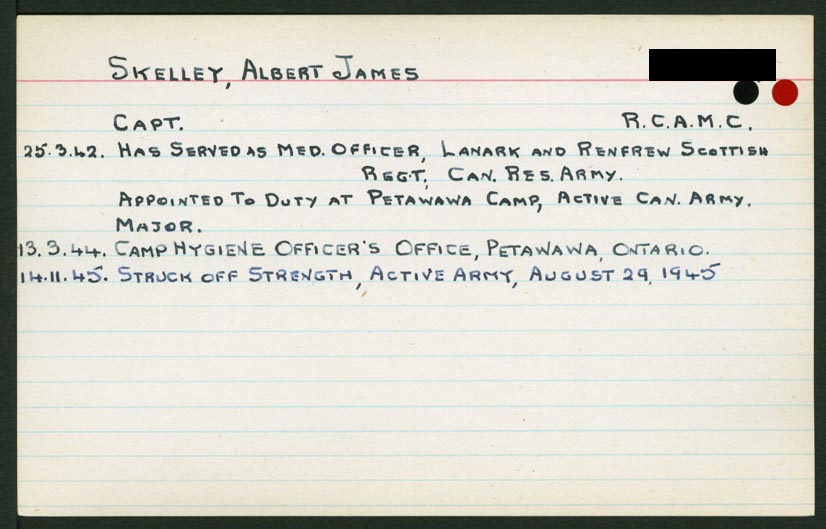 Skelley, Albert James
Capt. R.C.A.M.C.
25.3.42. Has Served as Med. Officer, Lanark and Renfrew Scottish
Regt, Can. Res. Army.
Appointed To Duty at Petawawa Camp, Active Can. Army.
Major.
13.3.44. Camp Hygiene Officer's Office, Petawawa, Ontario.
14.11.45. Struck off Strength, Active Army, August 29, 1945